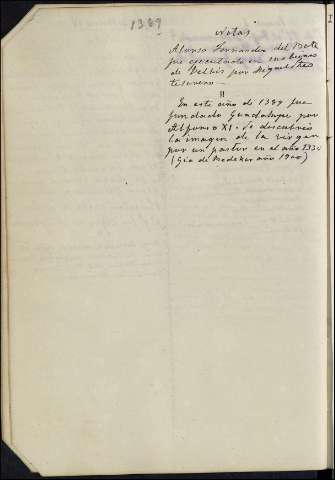 1389
Notas
Alonso Fernandez del
fue ejecutado en sus bienes
de por Miguel
tesorero —
"
En este año de 1389 fue
fundado Guadalupe por
Alfonso XI. Se descubrió
la imagen de la virgen
por un pastor en el año 1330
(Gia de año 1900)